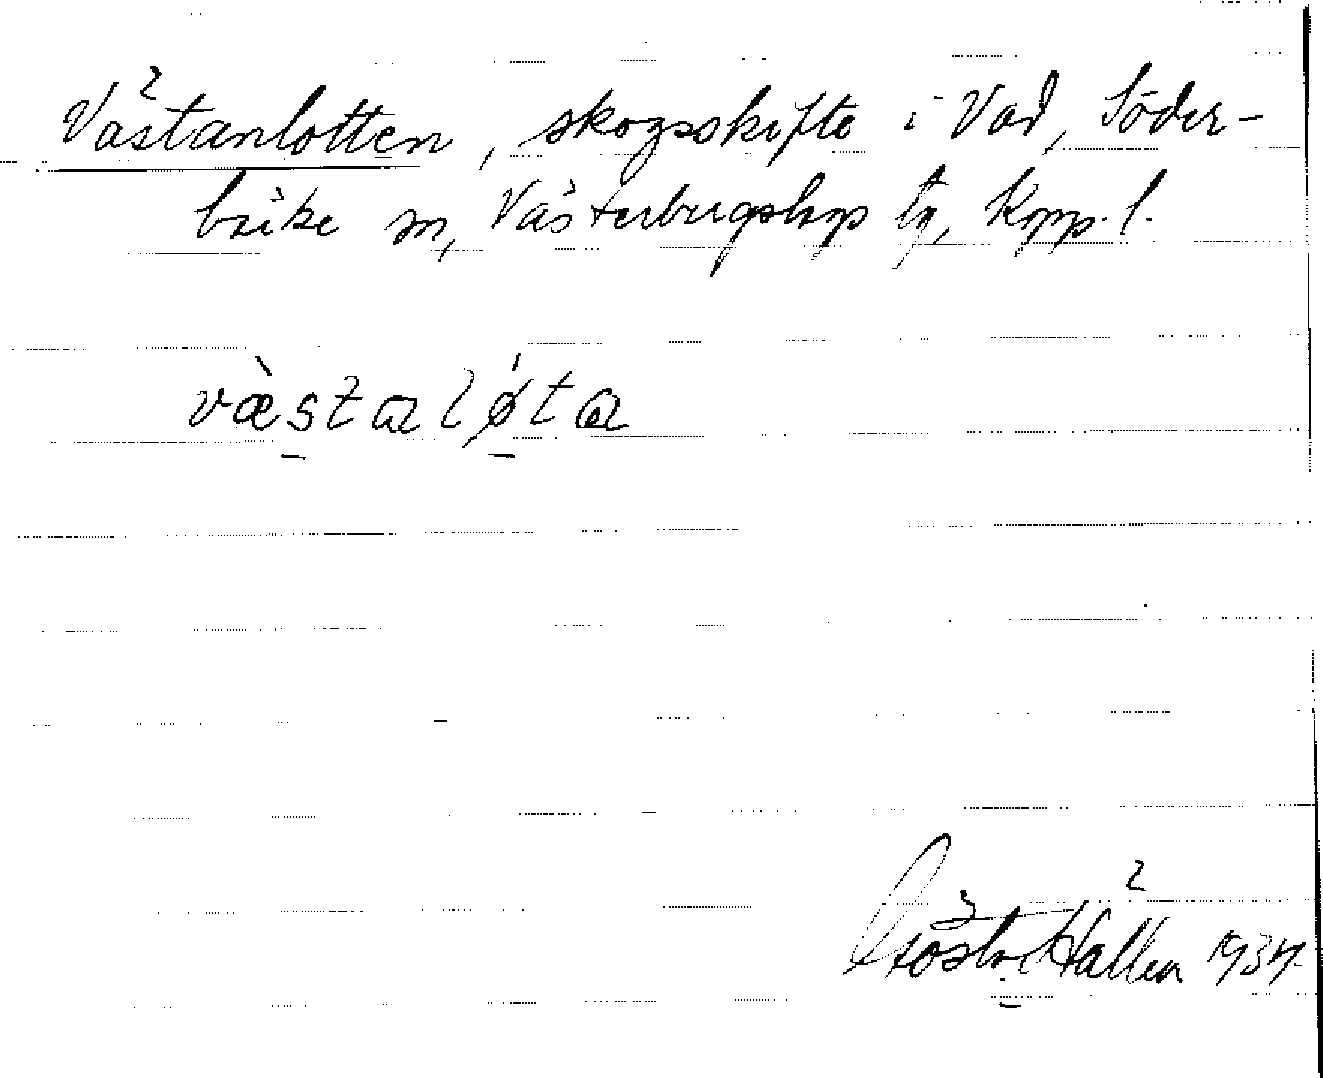 Västanlotten, skogsskifte i Vad, Söder-
bärke sn, Västerbergslags tg, Kopp. l.
væ̀stalǿta
Gösta Hallén 1934